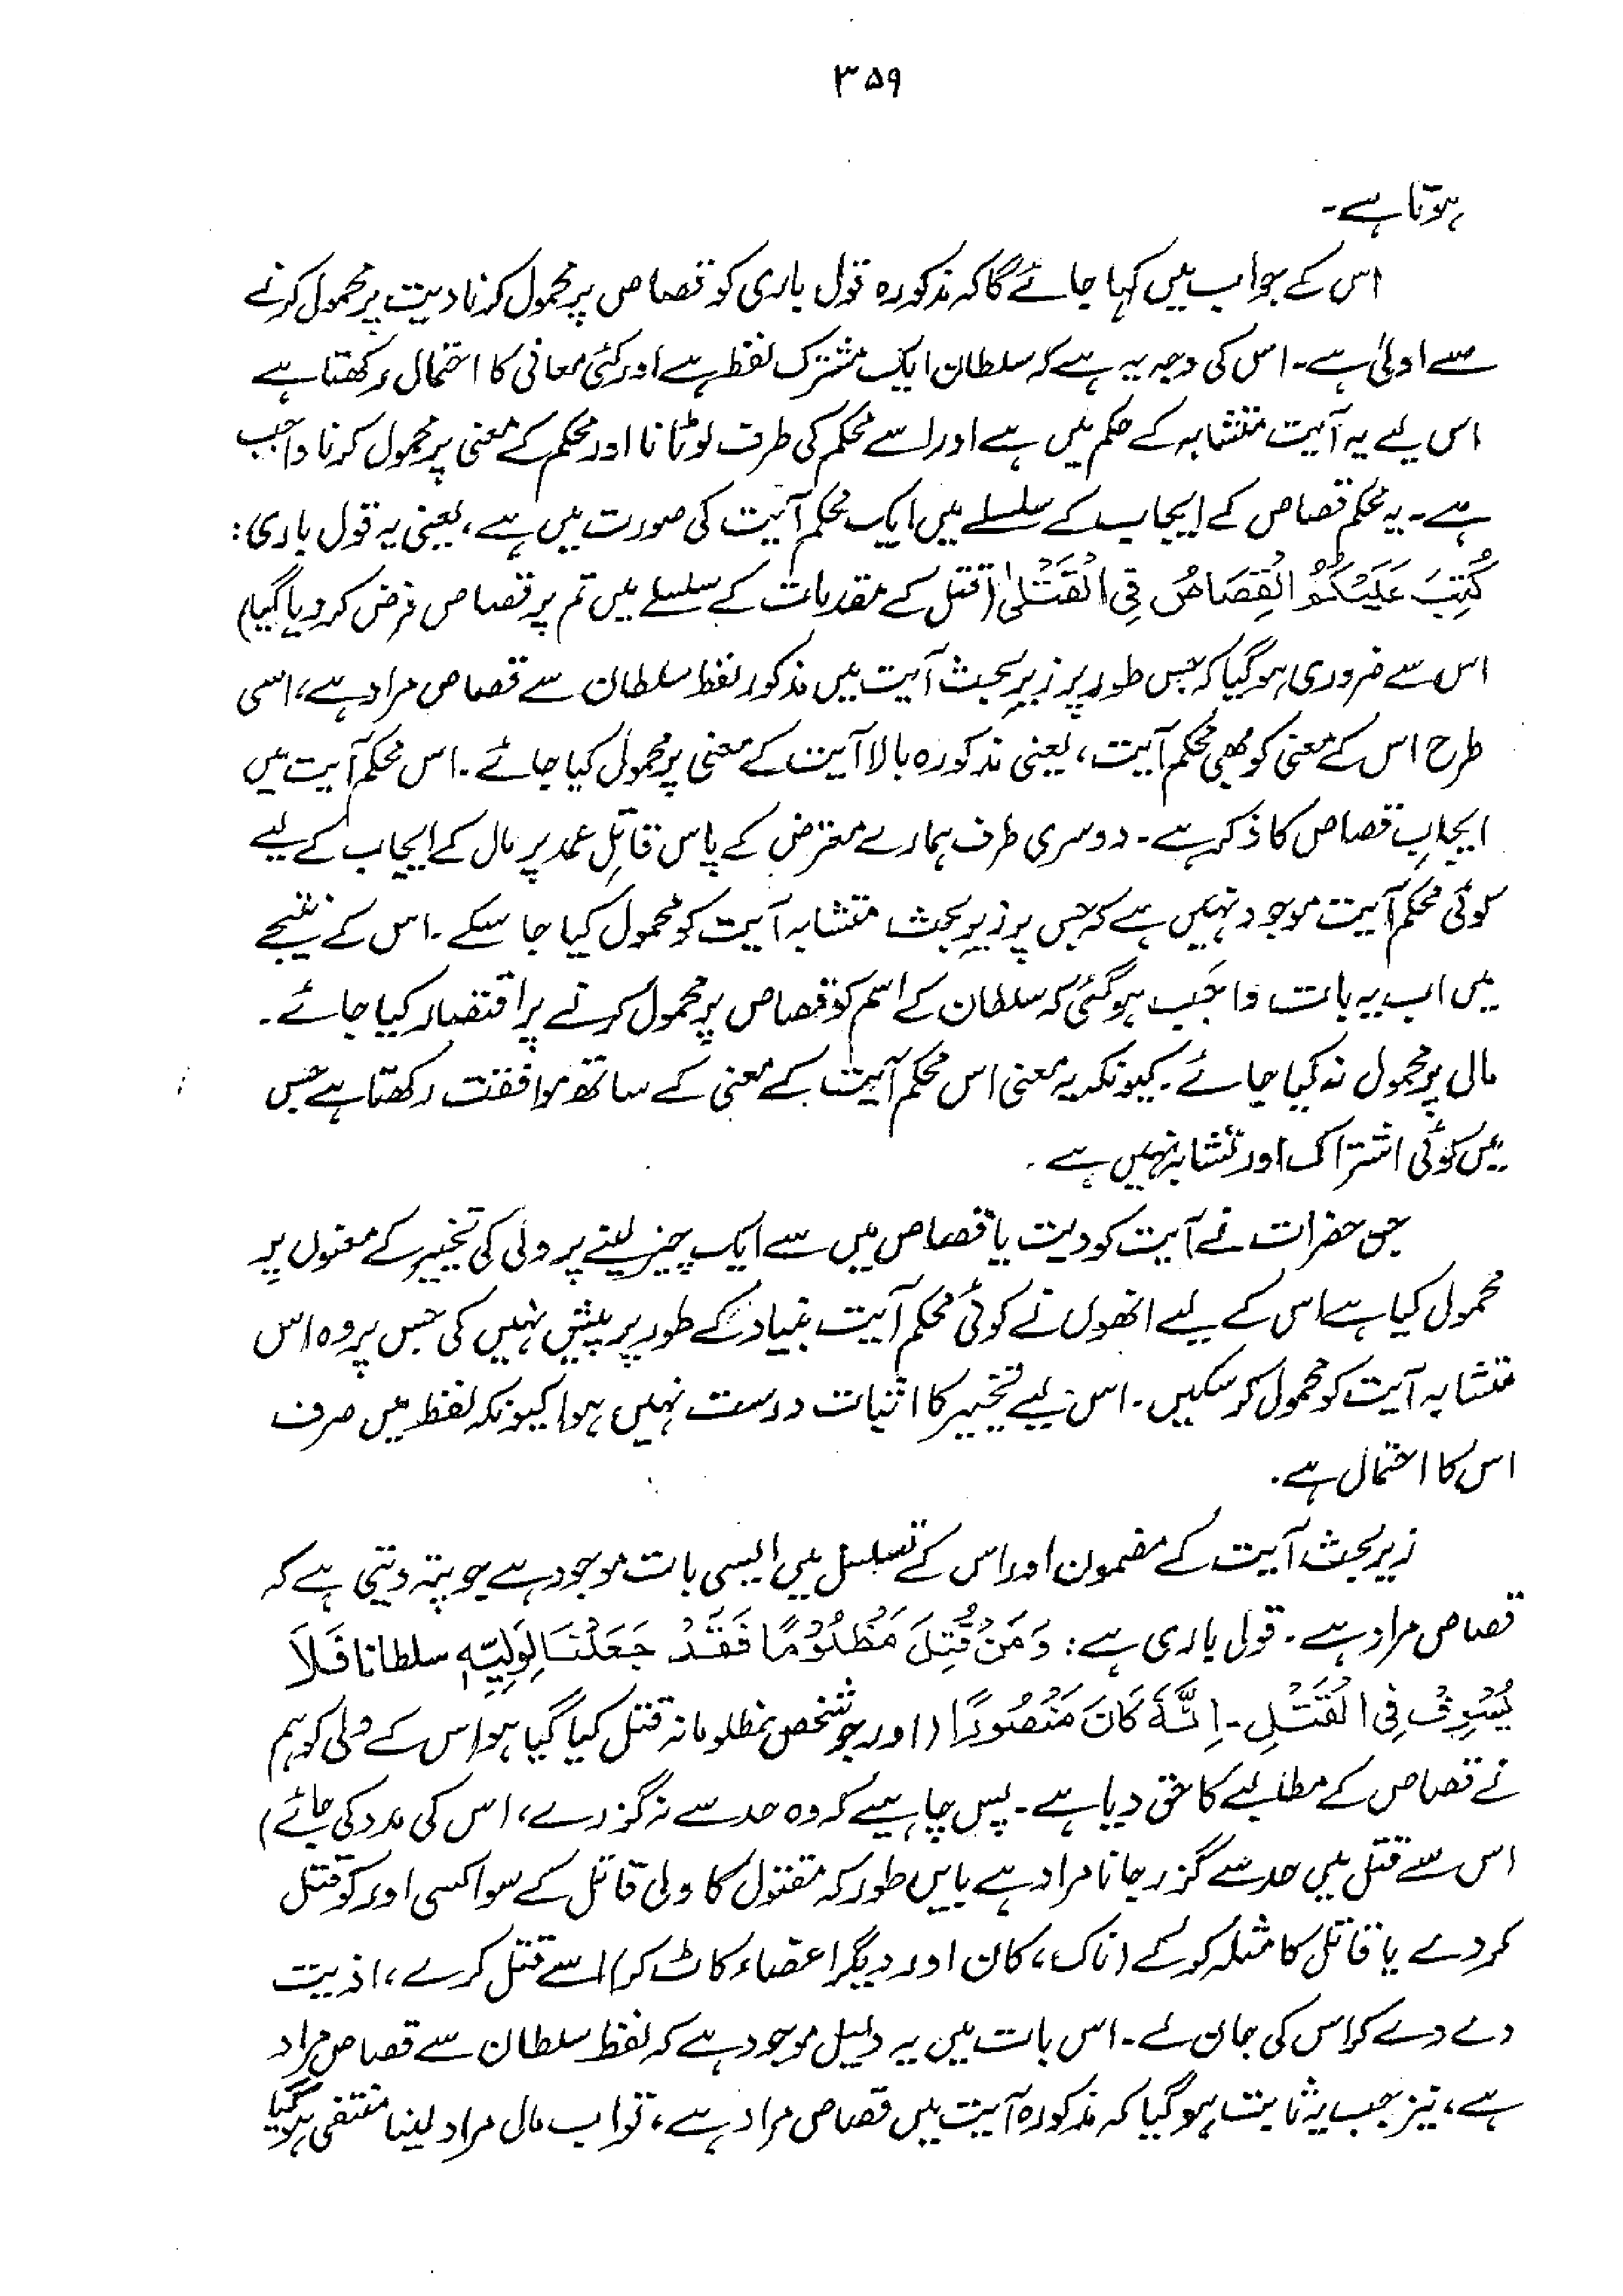 ۳۵۹
ہوتا ہے۔
اس کے جواب میں کہا جائے گا کہ مذکورہ قول باری کو قصاص پر محمول کرنا دیت پر محمول کرنے
سے اولیٰ ہے۔ اس کی وجہ یہ ہے کہ سلطان ایک مشترک لفظ ہے اور کئی معانی کا احتمال رکھتا ہے
اس لیے یہ آیت متشابہ کے حکم میں ہے اور اسے محکم کی طرف لوٹانا اور محکم کے معنی پر محمول کرنا واجب
ہے۔ یہ محکم قصاص کے ایجاب کے سلسلے میں ایک محکم آیت کی صورت میں ہے، یعنی یہ قول باری:
كُتِبَ عَلَيْكُمُ الْقِصَاصُ فِي الْقَتْلٰى (قتل کے مقدمات کے سلسلے میں تم پر قصاص فرض کر دیا گیا)
اس سے ضروری ہو گیا کہ جس طور پر زیرِ بحث آیت میں مذکور لفظ سلطان سے قصاص مراد ہے، اسی
طرح اس کے معنی کو بھی محکم آیت، یعنی مذکورہ بالا آیت کے معنی پر محمول کیا جائے۔ اس محکم آیت میں
ایجابِ قصاص کا ذکر ہے۔ دوسری طرف ہمارے معترض کے پاس قاتلِ عمد پر مال کے ایجاب کے لیے
کوئی محکم آیت موجود نہیں ہے کہ جس پر زیرِ بحث متشابہ آیت کو محمول کیا جا سکے۔ اس کے نتیجے
میں اب یہ بات واجب ہو گئی کہ سلطان کے اسم کو قصاص پر محمول کرنے پر اقتصار کیا جائے۔
مال پر محمول نہ کیا جائے۔ کیونکہ یہ معنی اس محکم آیت کے معنی کے ساتھ موافقت رکھتا ہے جس
میں کوئی اشتراک اور تشابہ نہیں ہے۔
جن حضرات نے آیت کو دیت یا قصاص میں سے ایک چیز لینے پر ولی کی تخییر کے معنوں پر
محمول کیا ہے اس کے لیے انھوں نے کوئی محکم آیت بنیاد کے طور پر پیش نہیں کی جس پر وہ اس
متشابہ آیت کو محمول کر سکیں۔ اس لیے تخییر کا اثبات درست نہیں ہوا کیونکہ لفظ میں صرف
اس کا احتمال ہے۔
زیرِ بحث آیت کے مضمون اور اس کے تسلسل میں ایسی بات موجود ہے جو پتہ دیتی ہے کہ
قصاص مراد ہے۔ قول باری ہے: وَمَنْ قُتِلَ مَظْلُوْمًا فَقَدْ جَعَلْنَا لِوَلِيِّهٖ سلطانا فَلَا
يُسْرِفْ فِي الْقَتْلِ۔ اِنَّهٗ كَانَ مَنْصُوْرًا (اور جو شخص مظلومانہ قتل کیا گیا ہو اس کے ولی کو ہم
نے قصاص کے مطالبے کا حق دیا ہے۔ پس چاہیے کہ وہ حد سے نہ گزرے، اس کی مدد کی جائے)
اس سے قتل میں حد سے گزر جانا مراد ہے بایں طور کہ مقتول کا ولی قاتل کے سوا کسی اور کو قتل
کر دے یا قاتل کا مثلہ کر کے (ناک، کان اور دیگر اعضاء کاٹ کر) اسے قتل کرے، اذیت
دے دے کر اس کی جان لے۔ اس بات میں یہ دلیل موجود ہے کہ لفظ سلطان سے قصاص مراد
ہے، نیز جب یہ ثابت ہو گیا کہ مذکورہ آیت میں قصاص مراد ہے، تو اب مال مراد لینا منتفی ہو گیا